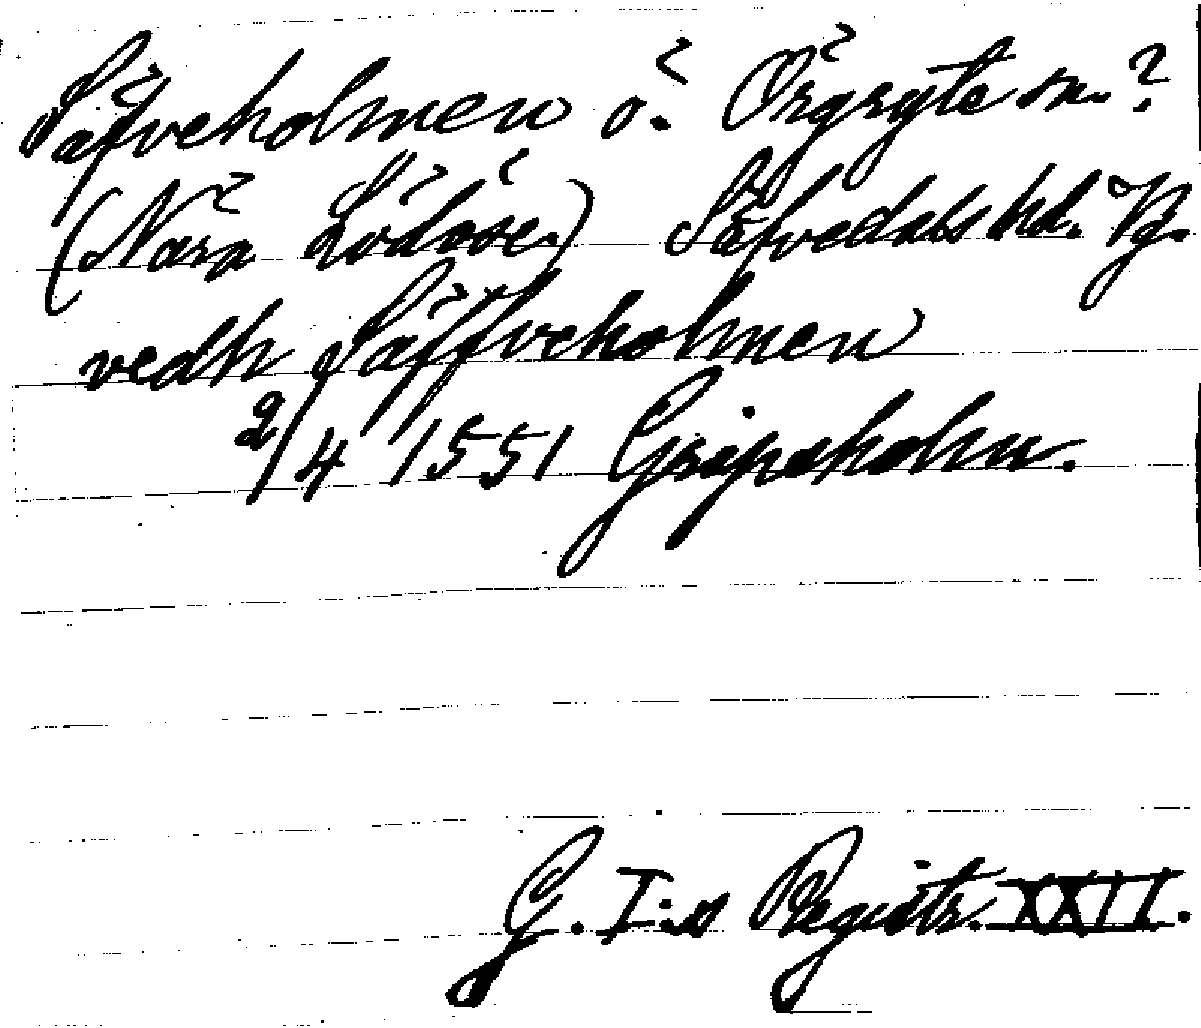 Säfveholmen ö. Örgryte sn.?
(Nära Lödöse.) Säfvedals hd. Vg.
vedh Säffveholmen
2/4 1551 Gripsholm.
G. I:s Registr. XXII.